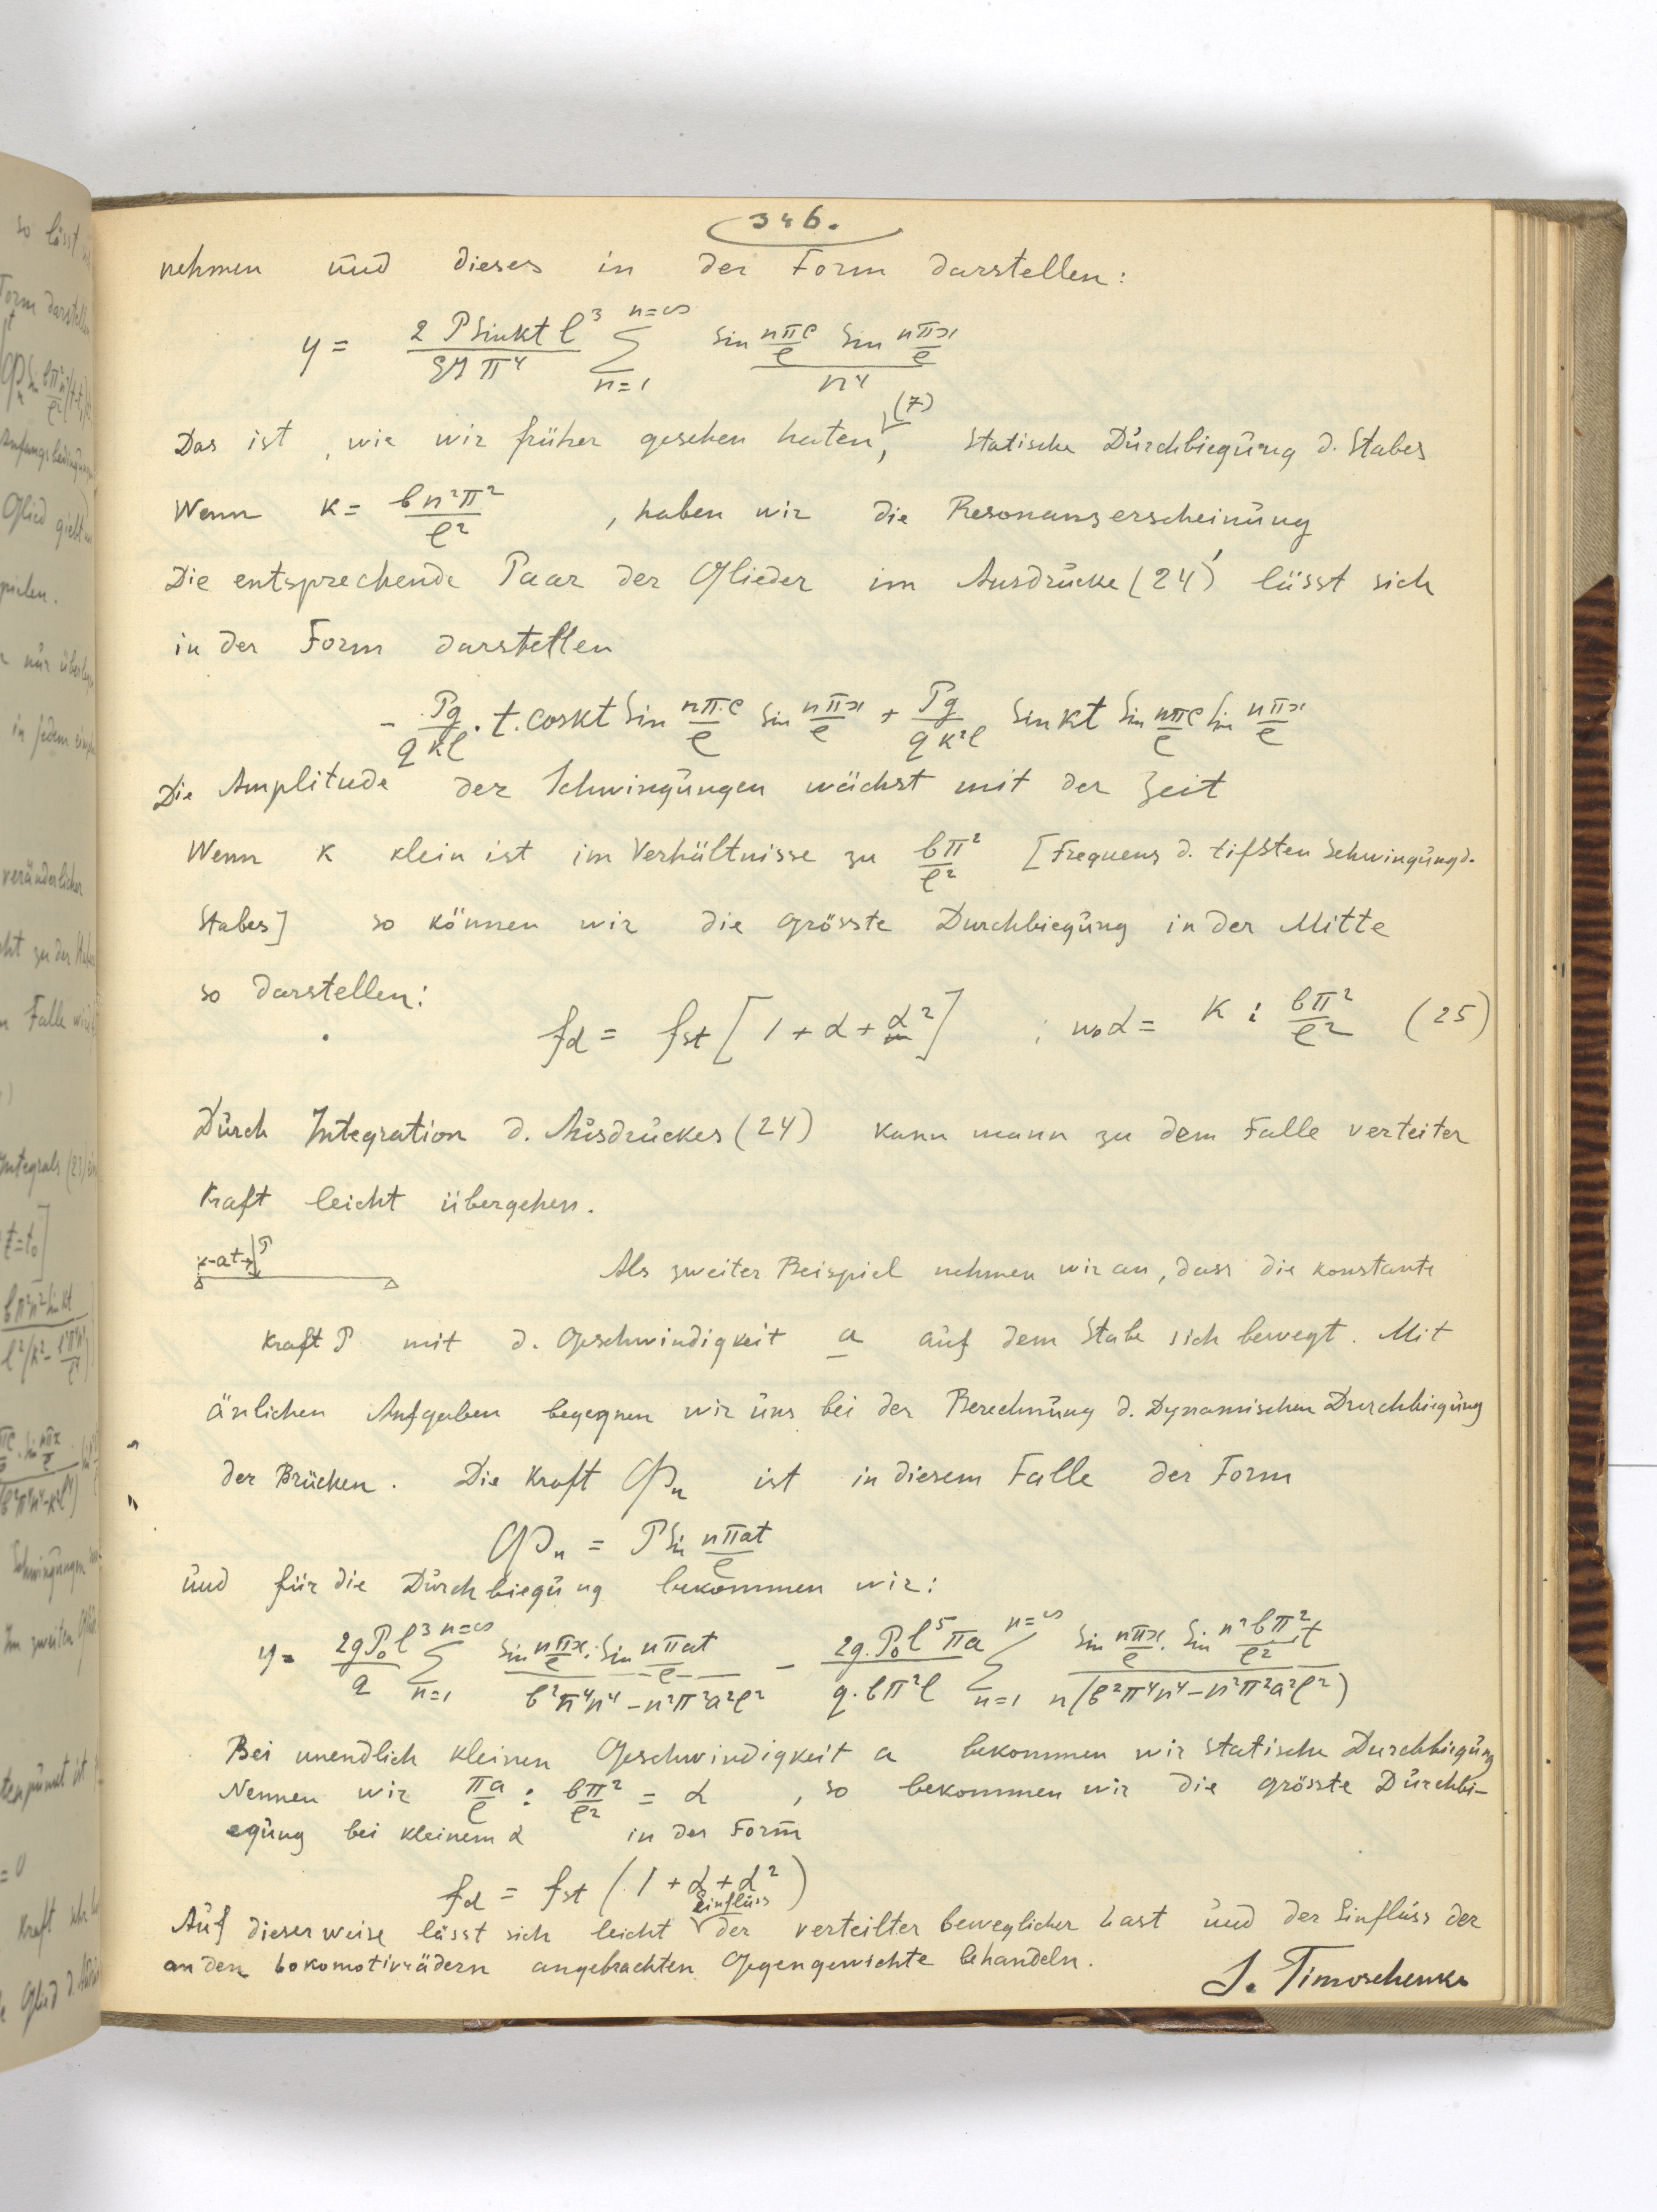 346.
nehmen und dieses in der Form darstellen:
y = 2 P Sin kt l³ / EJ π⁴ ∑ n=1 n=∞ Sin nπc/l Sin nπx/l / n⁴
Das ist, wie wir früher gesehen haten (7), Statische Durchbiegung d. Stabes
Wenn k = bn²π²/l² , haben wir die Resonanzerscheinung
Die entsprechende Paar der Glieder im Ausdrucke (24)' lässt sich
in der Form darstellen
- Pg/qkl . t. cos kt Sin nπc/l Sin nπx/l + Pg/qk²l Sin kt Sin nπc/l Sin nπx/l
Die Amplitude der Schwingungen wächst mit der Zeit
Wenn k klein ist im Verhältnisse zu bπ²/l² [Frequenz d. tifsten Schwingung d.
Stabes] so können wir die grösste Durchbiegung in der Mitte
so darstellen:
fd = fst [1 + α + α²] ; wo α = k : bπ²/l² (25)
Durch Integration d. Ausdruckes (24) kann mann zu dem Falle verteiter
Kraft leicht übergehen.
at P
Als zweiter Beispiel nehmen wir an, dass die konstante
Kraft P mit d. Geschwindigkeit a auf dem Stabe sich bewegt. Mit
änlichen Aufgaben begegnen wir uns bei der Berechnung d. Dynamischen Durchbiegung
der Brücken. Die Kraft Φn ist in diesem Falle der Form
Φn = P Sin nπat/l
und für die Durchbiegung bekommen wir:
y = 2gP₀l³/q ∑ n=1 n=∞ Sin nπx/l . Sin nπat/l / b²π⁴n⁴ - n²π²a²l² - 2g.P₀l⁵πa / q.bπ²l ∑ n=1 n=∞ Sin nπx/l . Sin n²bπ²t/l² / n(b²π⁴n⁴ - n²π²a²l²)
Bei unendlich kleinen Geschwindigkeit a bekommen wir statische Durchbiegung
Nennen wir πa/l : bπ²/l² = α , so bekommen wir die grösste Durchbi-
egung bei kleinem α in der Form
fd = fst (1 + α + α²)
Auf dieser weise lässt sich leicht einfluss der verteilter beweglicher Last und der Einfluss der
an den Lokomotivrädern angebrachten Gegengewichte behandeln.
S. Timoschenko